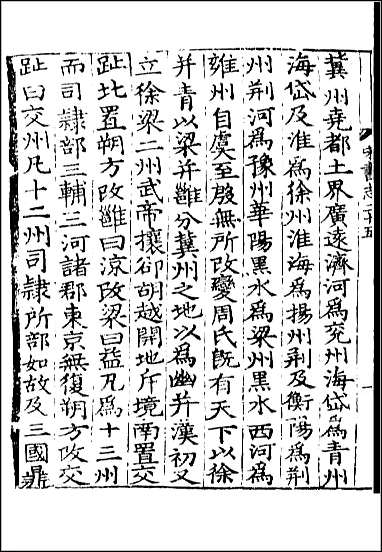 冀州堯都土界廣遠濟河爲兖州海岱爲青州
海岱及淮爲徐州淮海爲揚州荆及衡陽爲荆
州荆河爲豫州華陽黑水爲梁州黑水西河爲
雍州自虞至殷無所改變周氏旣有天下以徐
并青以梁并雝分冀州之地以爲幽并漢初又
立徐梁二州武帝攘卻胡越開地斥境南置交
趾北置朔方改雝曰涼改梁曰益凡爲十三州
而司隷部三輔三河諸郡東京無復朔方改交
趾曰交州凡十二州司隷所部如故及三國鼎